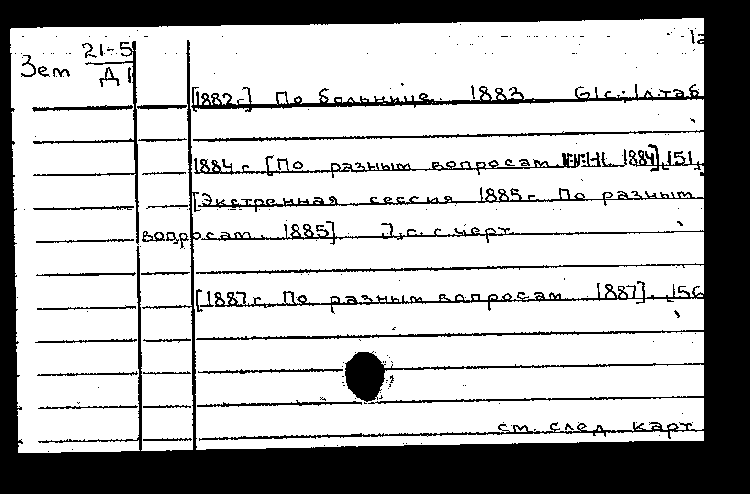 Зет 21-5
Д1
[1882г.] По больнице. 1883. 61с.; 1л.таб
1884 г. [По разным вопросам 1884]. 151
[Экстренная сессия 1885г. По разным
вопросам. 1885] с. с черт
[1887г. По разным вопросам 1887]. 156
см. след. карт.